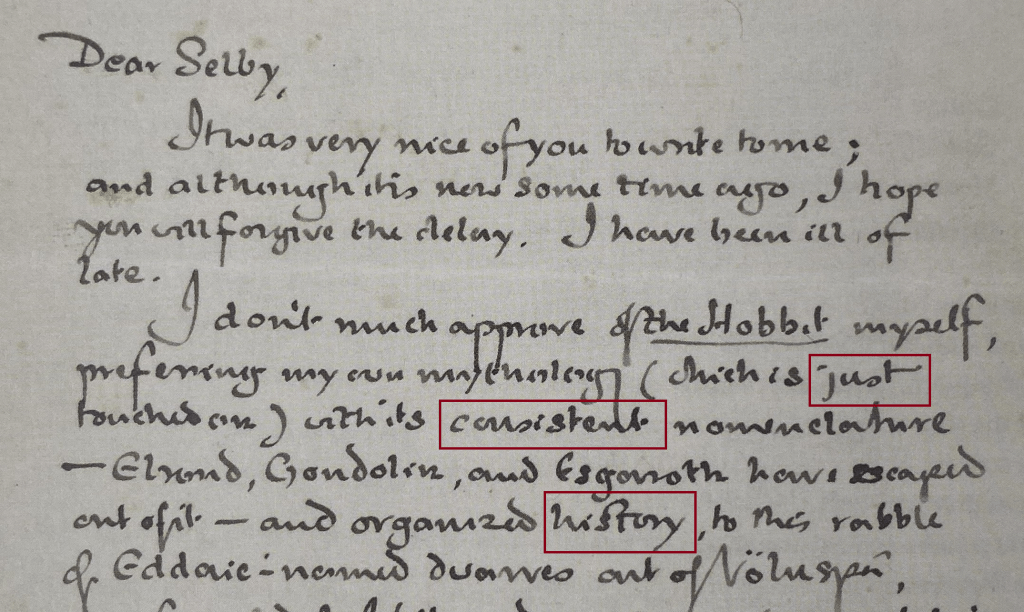 Dear Selby,
It was very nice of you to write to me ;
and although it is now some time ago, I hope
you will forgive the delay. I have been ill of
late.
I don't much approve of the Hobbit myself,
preferring my own mythology (which is just
touched on) with its consistent nomenclature
— Elrond, Gondolin, and Esgaroth have escaped
out of it — and organized history, to this rabble
of Eddaic-named dwarves out of Völuspá,